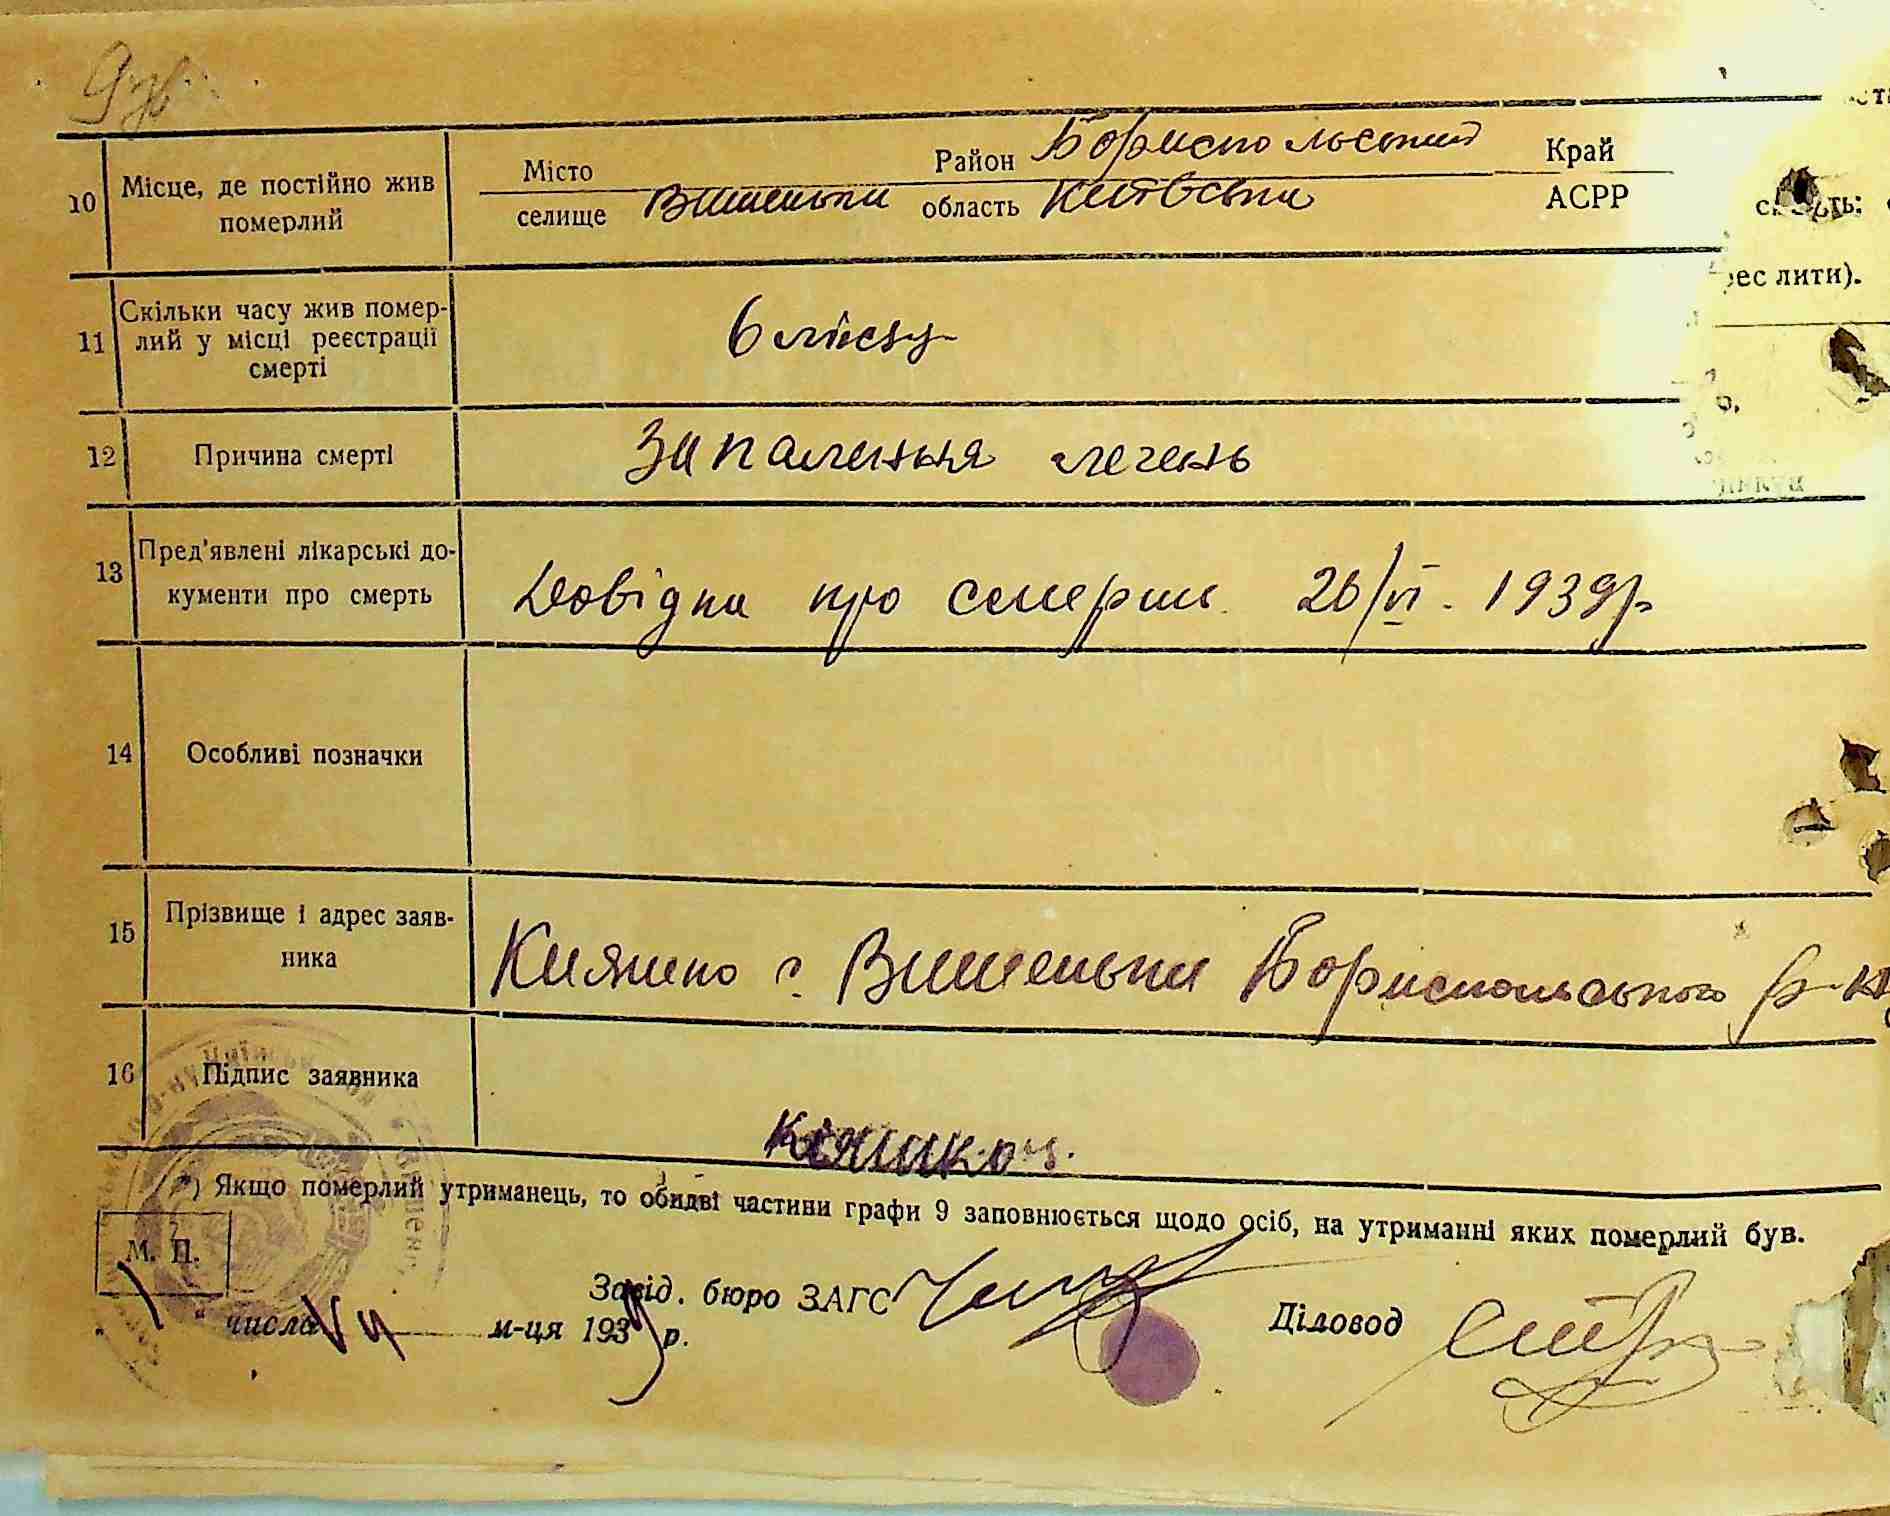 9 зв.
10 Місце, де постійно жив померлий
Місто Район Бориспольський Край
селище Вишеньки область Київська АСРР
11 Скільки часу жив помер-
лий у місці реєстрації
смерті
6 місяц
12 Причина смерті Запалення легень
13 Пред'явлені лікарські до-
кументи про смерть
Довідка про смерть 26/VI. 1939 р
14 Особливі позначки
15 Прізвище і адрес заяв-
ника
Кияшко с. Вишеньки Бориспольського р-ну
16 Підпис заявника
*) Якщо померлий утриманець, то обидві частини графи 9 заповнюється щодо осіб, на утриманні яких померлий був.
М. П.
Завід. бюро ЗАГС
Діловод
"1" числа VII м-ця 1939 р.